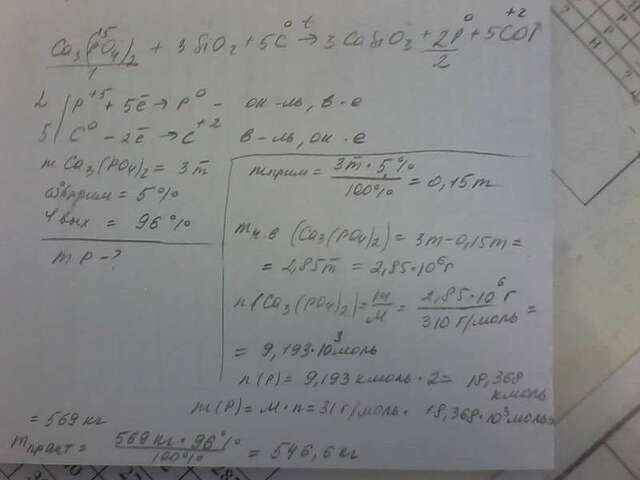 Ca₃(⁺⁵PO₄)₂ + 3SiO₂ + 5C⁰ →ᵗ 3CaSiO₃ + 2P⁰ + 5C⁺²O↑
1 2
2 | P⁺⁵ + 5ē → P⁰ - ок-ль, в-е
5 | C⁰ - 2ē → C⁺² в-ль, ок-е
m Ca₃(PO₄)₂ = 3т
ω прим = 5%
η вых = 96%
m P - ?
m прим = 3т · 5% / 100% = 0,15т
m ч.в (Ca₃(PO₄)₂) = 3т - 0,15т =
= 2,85т = 2,85·10⁶г
n(Ca₃(PO₄)₂) = m/M = 2,85·10⁶г / 310 г/моль =
= 9,193·10³моль
n(P) = 9,193 кмоль · 2 = 18,368 кмоль
m(P) = M·n = 31г/моль · 18,368·10³моль=
= 569 кг
m практ = 569 кг · 96% / 100% = 546,6 кг